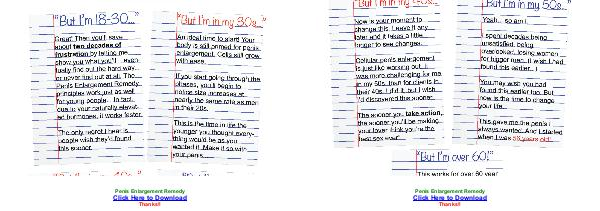 "But I'm 18-30..."
Great! Then you'll save
about two decades of
frustration by letting me
show you what you'll even-
tually find out the hard way...
or never find out at all. The
Penis Enlargement Remedy
principles work just as well
for young people. In fact,
due to your naturally elevat-
ed hormones, it works faster.
The only regret I hear is
people wish they'd found
this sooner.
"But I'm in my 30s..."
An ideal time to start! Your
body is still primed for penis
enlargement. Cells still grow
with ease.
If you start going through the
phases, you'll begin to
notice size increases at
nearly the same rate as men
in their 20s.
This is the time in life the
younger you thought every-
thing would be as you
wanted it. Make it so with
your penis.
Penis Enlargement Remedy
Click Here to Download
Thanks!!
"But I'm in my 40s..."
Now is your moment to
change this. Leave it any
later and it takes a little
longer to see changes.
Cellular penis enlargement
is just like working out. It
was more challenging for me
in my 50s, than for clients in
their 40s. I did it, but I wish
I'd discovered this sooner.
The sooner you take action,
the sooner you'll be making
your lover think you're the
best sex ever.
"But I'm in my 50s..."
Yeah... so am I.
I spent decades being
unsatisfied, being
overlooked, losing women
for bigger men. (I wish I had
found this earlier...)
You may wish you had
found this earlier too. But
now is the time to change
your life.
This gave me the penis I
always wanted. And I started
when I was 56 years old!
"But I'm over 60!"
This works for over 60 year
Penis Enlargement Remedy
Click Here to Download
Thanks!!